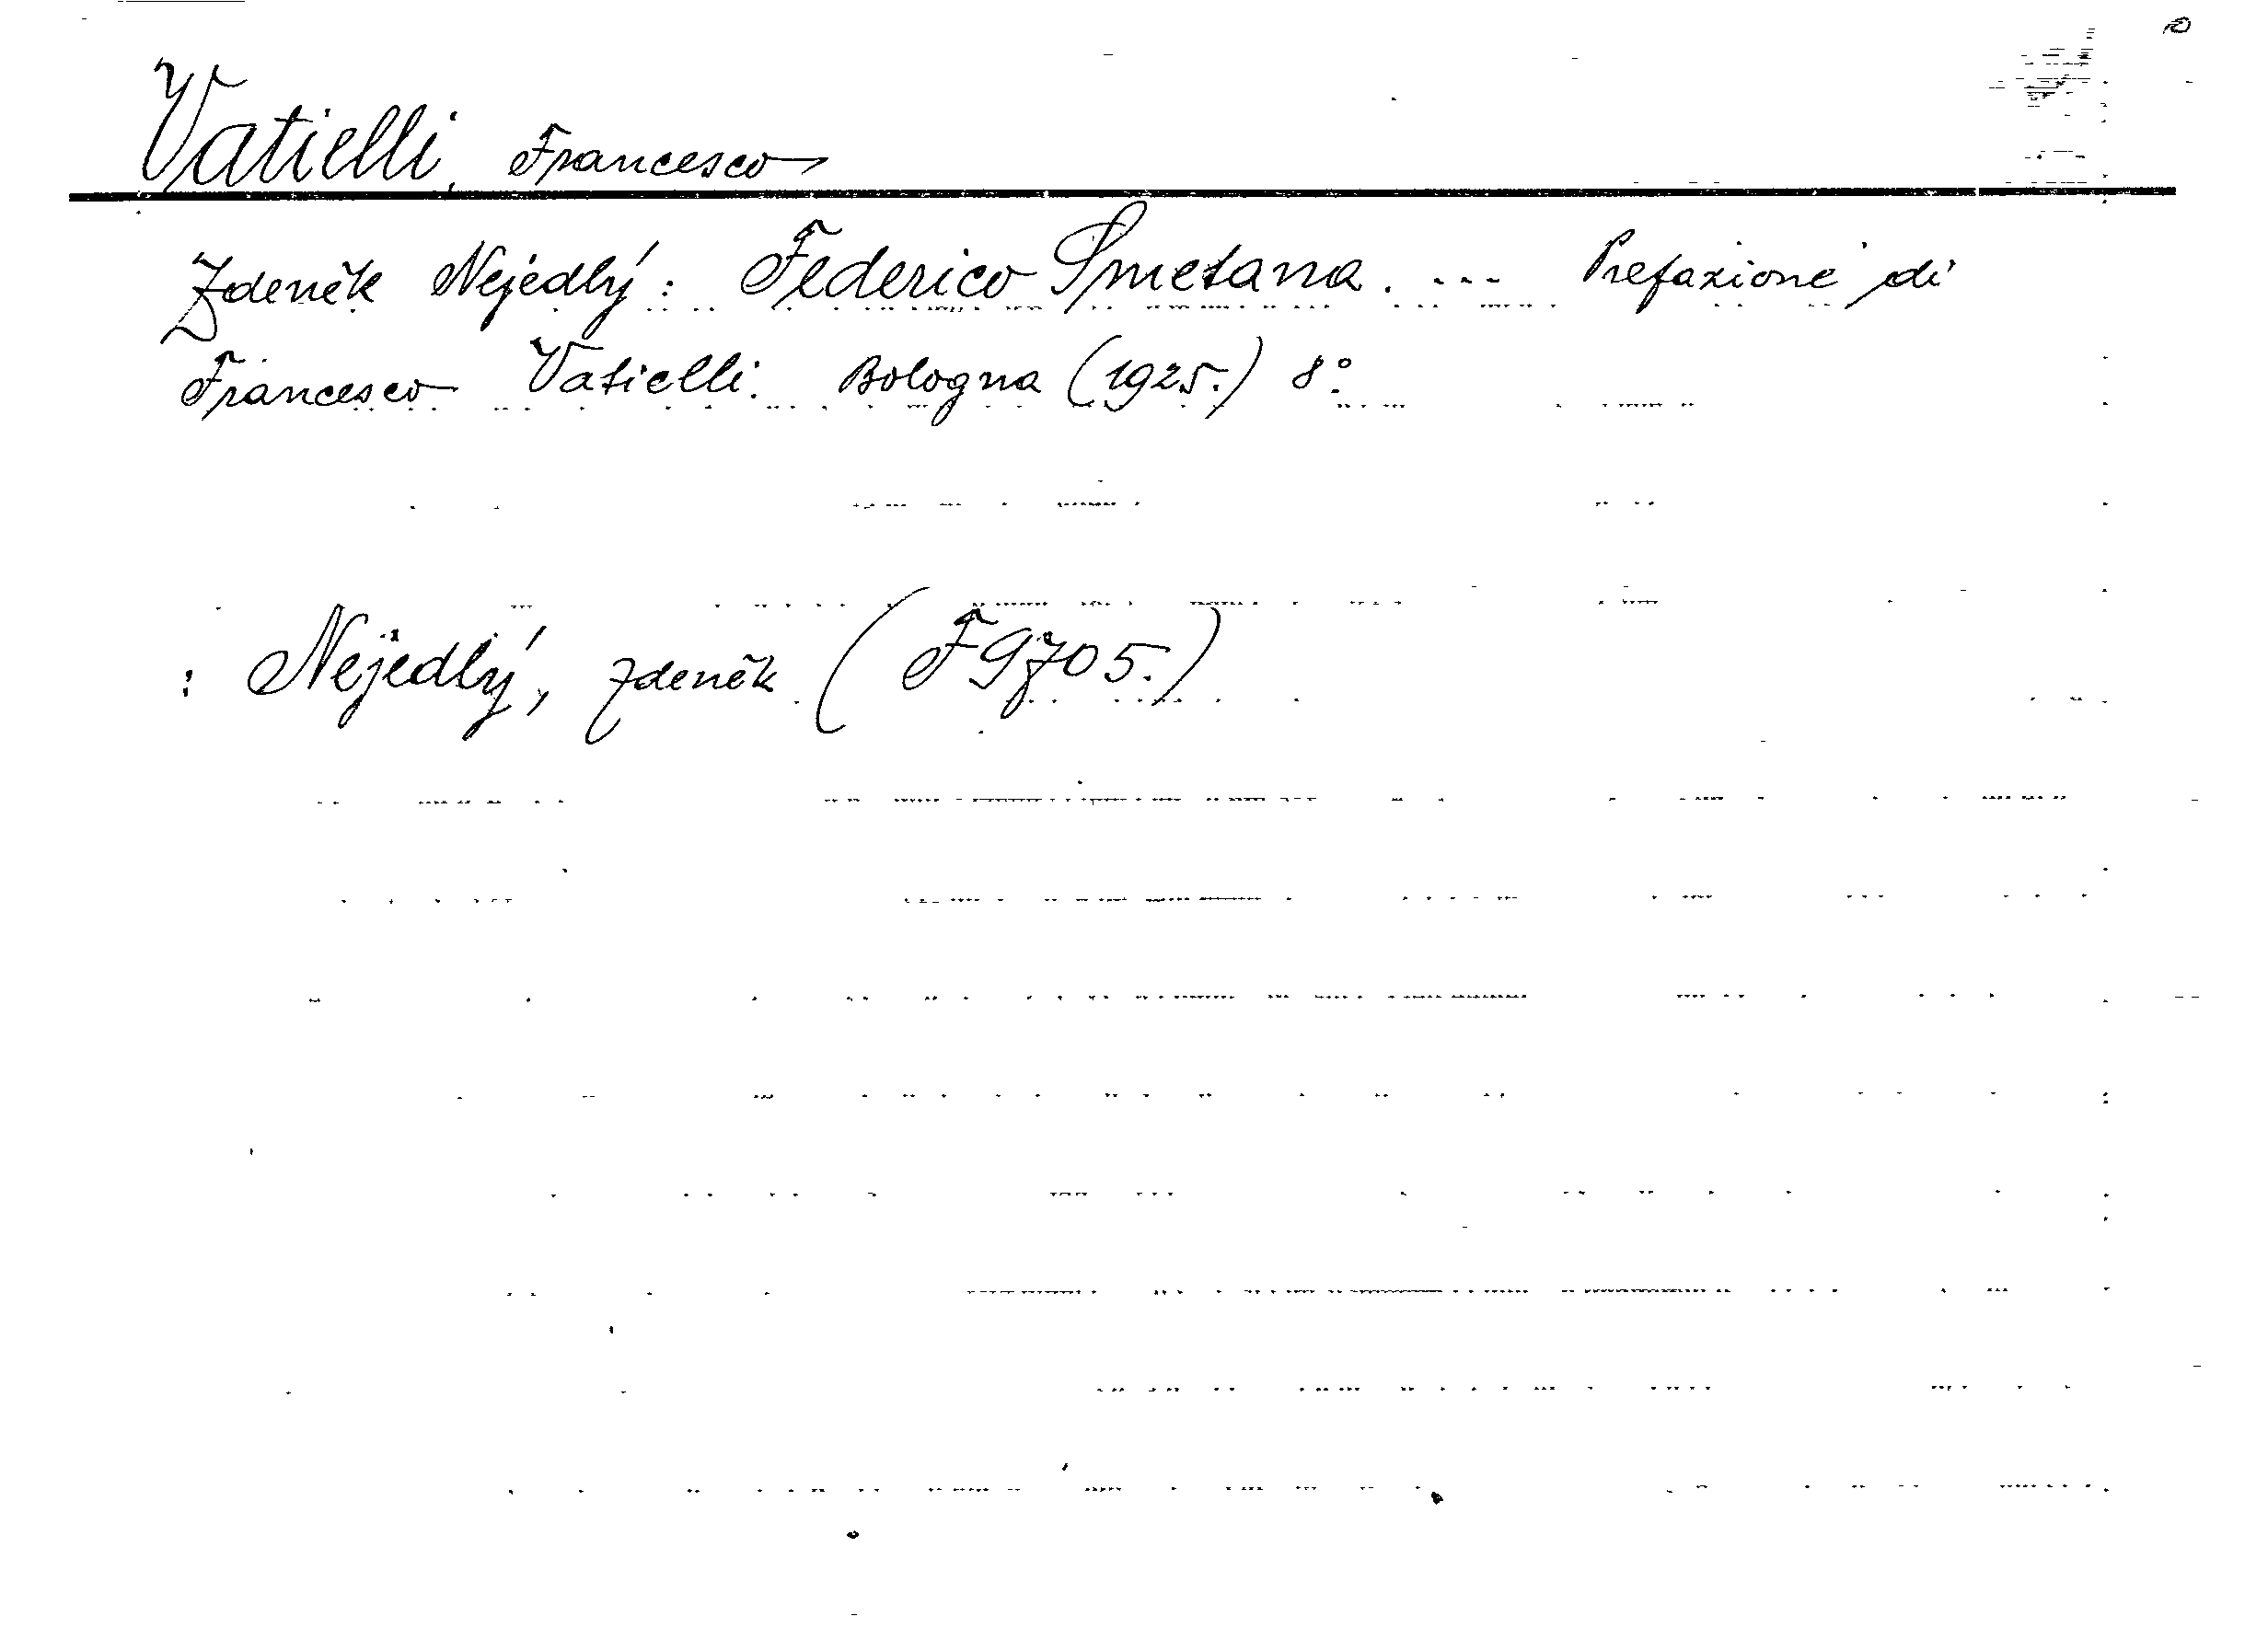 Vatielli, Francesco
Zdeněk Nejedlý: Federico Smetana. ... Prefazione di
Francesco Vatielli. Bologna (1925.) 8°.
: Nejedlý, Zdeněk (F9705.)